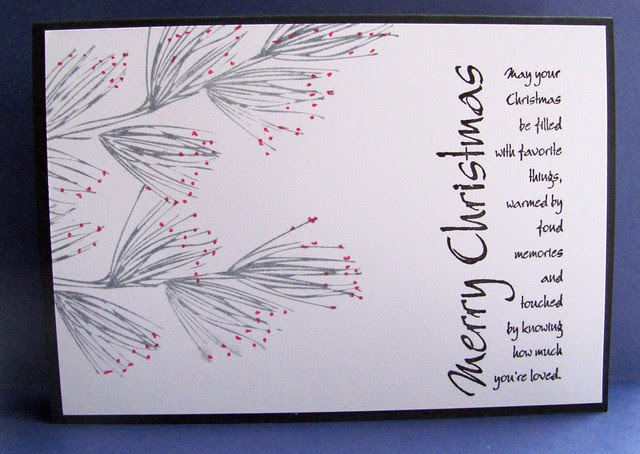 Merry Christmas
May your
Christmas
be filled
with favorite
things,
warmed by
fond
memories
and
touched
by knowing
how much
you're loved.